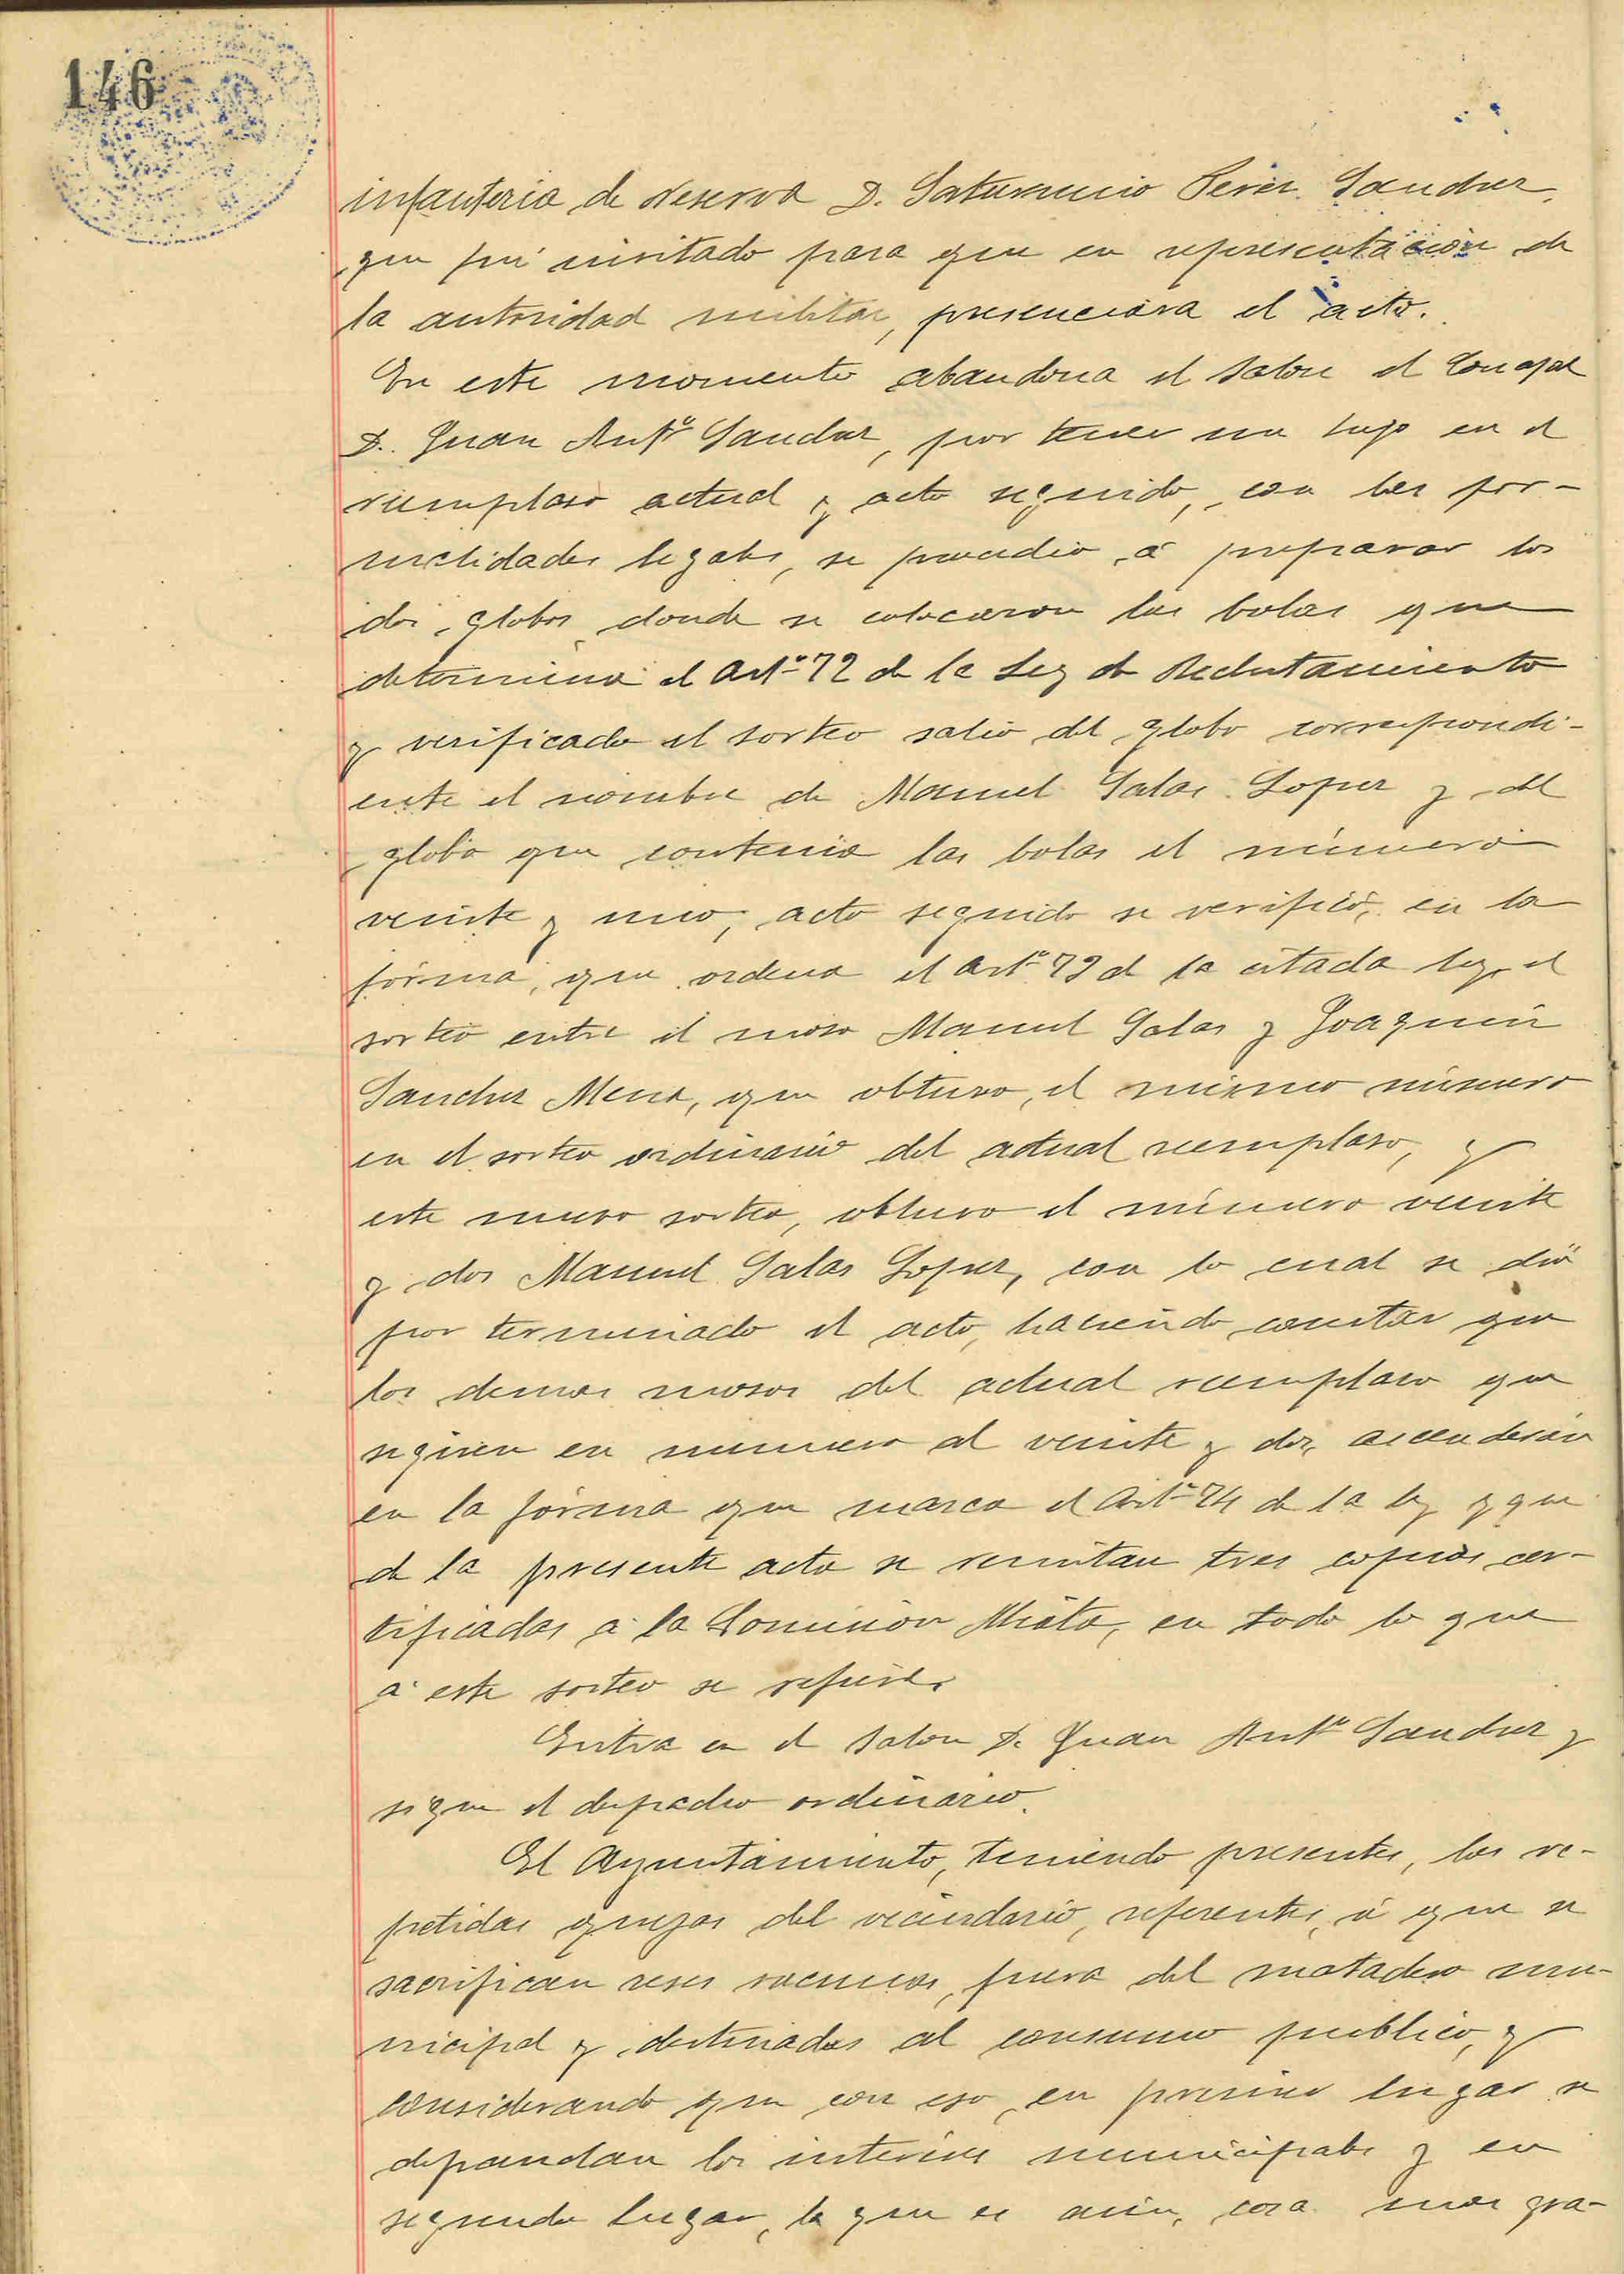 146
infanteria de reserva D. Saturnino Perez Sanchez,
que fué invitado para que en representación de
la autoridad militar, presenciara el acto.
En este momento abandona el salon el Concejal
D. Juan Antº Sanchez, por tener un hijo en el
reemplaso actual y acto seguido, con las for-
malidades legales, se procedio á preparar los
dos globos donde se colocaron las bolas que
determina el Artº 72 de la Ley de Reclutamiento
y verificado el sorteo salio del globo correspondi-
ente el nombre de Manuel Salas Lopez y del
globo que contenia las bolas el número
veinte y uno; acto seguido se verificó, en la
fórma, que ordena el artº 72 de la citada ley, el
sorteo entre el moso Manuel Salas y Joaquin
Sanchez Mena, que obtuvo, el mismo número
en el sorteo ordinario del actual reemplaso, y
este nuevo sorteo, obtuvo el número veinte
y dos Manuel Salas Lopez, con lo cual se dió
por terminado el acto, haciendo constar que
los demas mosos del actual reemplaso que
siguen en numero al veinte y dos, ascenderán
en la fórma que marca el Artº 74 de la ley y que
de la presente acta se remitan tres copias cer-
tificadas á la Comision Mista, en todo lo que
á este sorteo se refiere.
Entra en el salon D. Juan Antº Sanchez y
sigue el despacho ordinario.
El Ayuntamiento, teniendo presentes, las re-
petidas quejas del vecindario, referentes, á que se
sacrifican reses vacunas, fuera del matadero mu-
nicipal y destinadas al consumo publico, y
considerando que con eso, en primer lugar se
defraudan los intereses municipales y en
segundo lugar, lo que es aún, cosa mas gra-